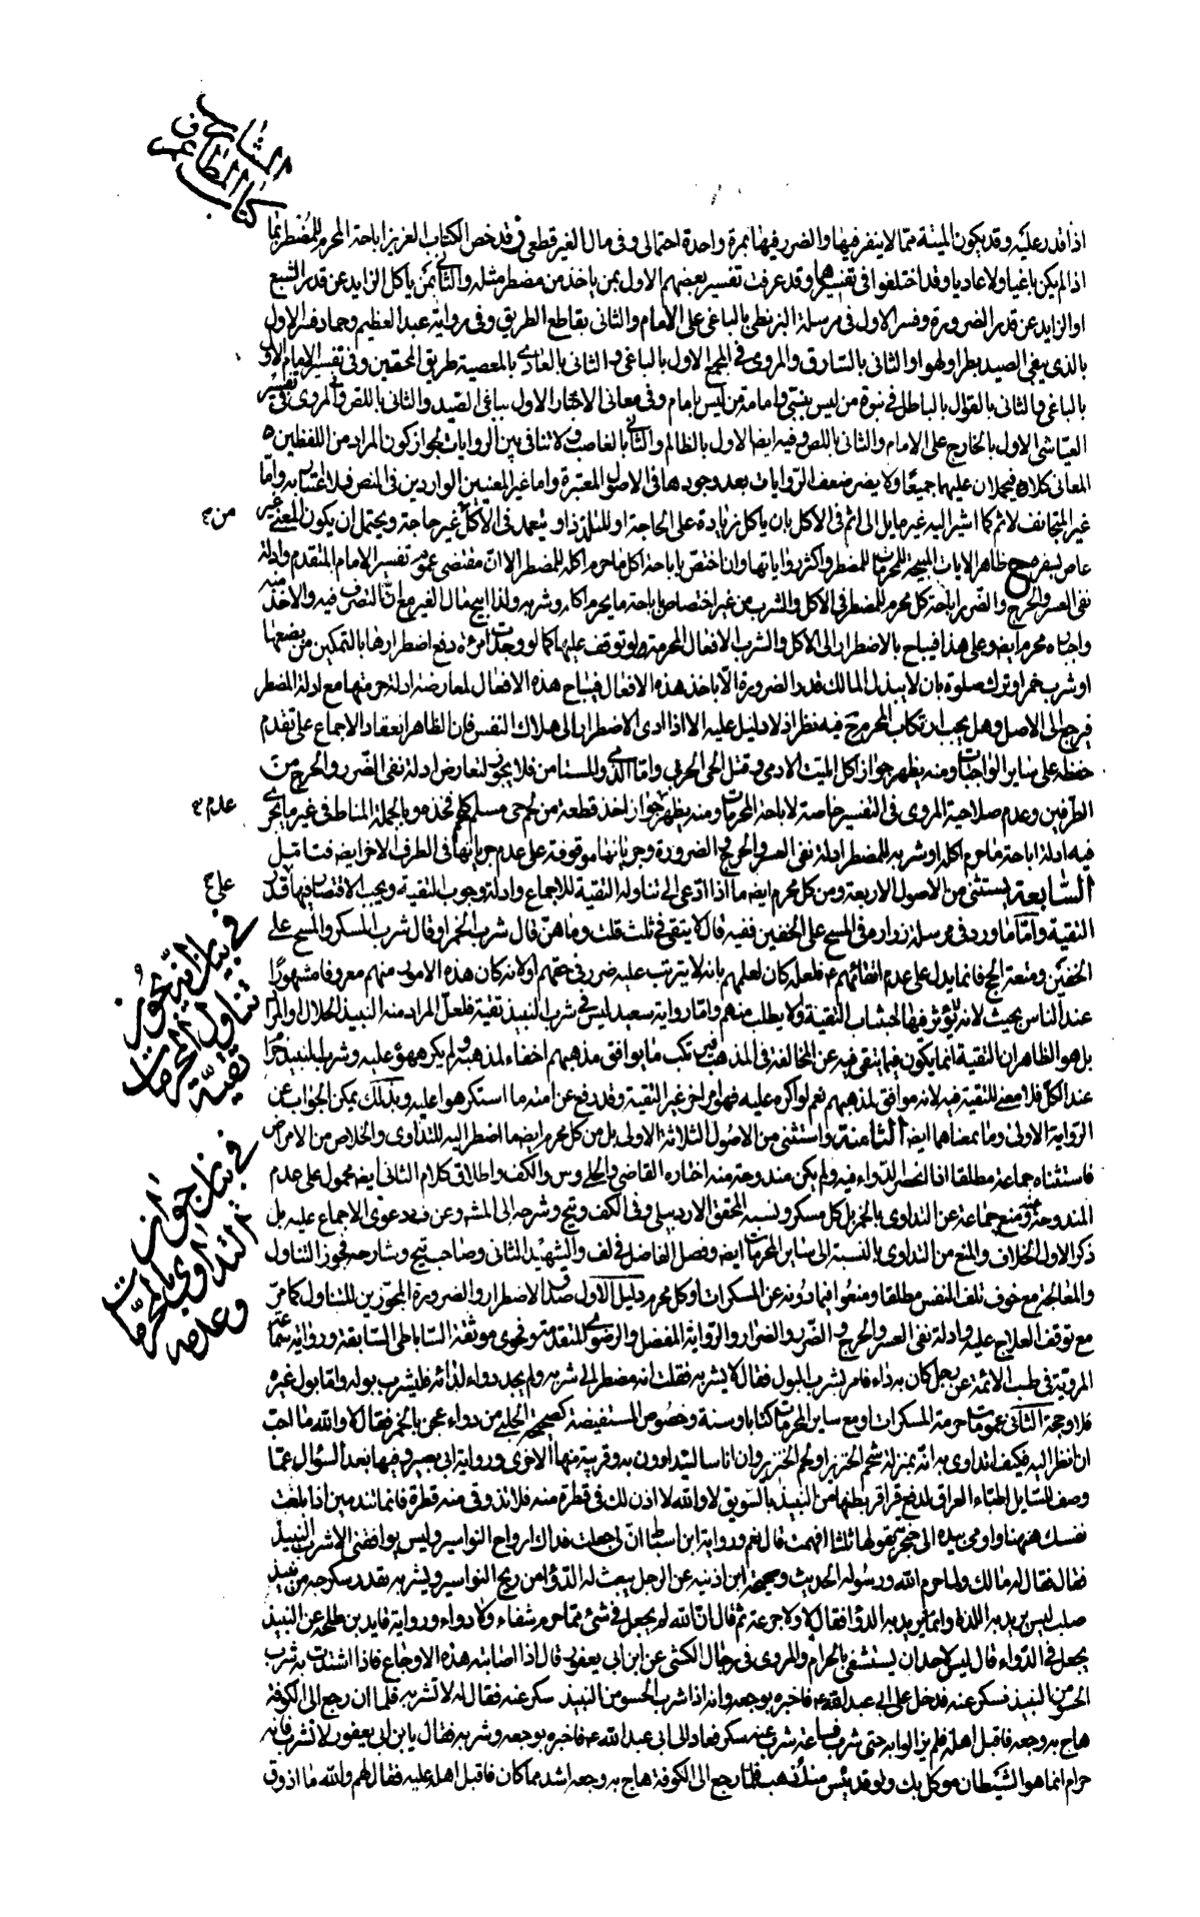 المشارب
كتاب المطاعم و
اذا قدر عليه وقد يكون الميتة مما لا يتنفر فيها والضرر فيها بمرة واحدة احتمالى وفى مال الغير قطعى ثم قد خص الكتاب العزيز اباحة المحرم للمضطر بما
اذا لم يكن باغيا ولا عاديا وقد اختلفوا فى تفسيرهما وقد عرفت تفسير بعضهم الاول بمن ياخذ من مضطر مثله والثانى بمن ياكل الزايد عن قدر الشبع
او الزايد عن قدر الضرورة وفسر الاول فى مرسلة البزنطى بالباغى على الامام والثانى بقاطع الطريق وفى رواية عبد العظيم وحماد فسر الاول
بالذى يبغى الصيد بطرا ولهوا والثانى بالسارق والمروى فى المجمع الاول بالباغى والثانى بالعادى بالمعصية طريق المحقين وفى تفسير الامام الاول
بالباغى والثانى بالقوال بالباطل فى نبوة من ليس بنبى وامامة من ليس بامام وفى معانى الاخبار الاول بباغى الصيد والثانى باللص والمروى فى تفسير
العياشى الاول بالخارج على الامام والثانى باللص وفيه ايضا الاول بالظالم والثانى بالغاصب ولا تنافى بين الروايات لجواز كون المراد من اللفظين
المعانى كلا فيحملان عليها جميعا ولا يضر ضعف الروايات بعد وجودها فى الاصول المعتبرة واما غير المعنيين الواردين فى النص فلا اعتناء به واما
غير المتجانف لاثم كما اشير اليه غير مايل الى اثم فى الاكل بان ياكل زيادة على الحاجة او للتلذذ او يتعمد فى الاكل من غير حاجة ويحتمل ان يكون المعنى غير
عاص بسفره ح ظاهر الايات المبيحة للمحرمات للمضطر واكثر رواياتها وان اختص باباحة اكل ما حرم اكله للمضطر الا ان مقتضى عموم تفسير الامام المتقدم وادلة
نفى العسر والحرج والضرر اباحة كل محرم للمضطر فى الاكل والشرب من غير اختصاص باباحة ما يحرم اكله وشربه ولذا ابيح مال الغير مع ان التصرف فيه والاخذ منه
واجباه محرم ايضا وعلى هذا فيباح بالاضطرار الى الاكل والشرب الافعال المحرمة لو توقف عليها كما لو وجدت امراة دفع اضطرارها بالتمكين من بضعها
او شرب خمر او ترك صلوة بان لا يبذل المالك قدر الضرورة الا باخذ هذه الافعال فيباح هذه الافعال لمعارضة ادلة حرمتها مع ادلة المضطر
فيرجع الى الاصل وهل يجب ارتكاب المحرم ح فيه نظر اذ لا دليل عليه الا اذا ادى الاضطرار الى هلاك النفس فان الظاهر انعقاد الاجماع على تقدم
حفظه على ساير الواجبات ومنه يظهر جواز اكل الميت الادمى وقتل الحى الحربى واما الذمى والمستامن فلا يجوز لتعارض ادلة نفى الضرر والحرج من
الطرفين وعدم صلاحية المروى فى التفسير خاصة لاباحة المحرمات ومنه يظهر عدم جواز اخذ قطعة من لحم حى مسلم كلحم فخذه وبالجملة المناط فى غير ما يجرى
فيه ادلة اباحة ما حرم اكله او شربه للمضطر ادلة نفى العسر والحرج الضرورة وجريانها موقوفة على عدم جريانها فى الطرف الاخر ايضا فتامل
السابعة يستثنى من الاصول الاربعة ومن كل محرم ايضا ما اذا ادعى الى تناوله التقية للاجماع وادلة وجوب التقية ويجب الاقتصار فيها على قدر
التقية واما ما ورد فى مرسلة زرارة فى المسح على الخفين ففيه قال لا يتقى فى ثلث قلت وما هن قال شرب الخمر او قال شرب المسكر والمسح على
الخفين ومتعة الحج فانما يدل على عدم اتقائهم ع فلعله كان لعلمهم بانه لا يترتب عليه ضرر فى حقهم او لانه كان هذه الامور منهم معروفا مشهورا
عند الناس بحيث لا يؤثر فيها التقية ولا يطلب منهم واما رواية سعيد ليس فى شرب النبيذ تقية فلعل المراد منه النبيذ الحلال او المراد
بل هو الظاهر ان التقية انما يكون فيما يتقى فيه عن المخالفة فى المذهب فيرتكب ما يوافق مذهبهم اخفاء لمذهبه ولم يكرهوه عليه وشرب النبيذ حرام
عند الكل فلا معنى للتقية فيه لانه موافق لمذهبهم نعم لو اكره عليه فهو امر اخر غير التقية وقد رفع عن امته ما استكرهوا عليه وبذلك يمكن الجواب عن
الرواية الاولى وما بمعناهما ايضا الثامنة واستثنى من الاصول الثلاثة الاولى بل من كل محرم ايضا ما اضطر اليه للتداوى والخلاص من الامراض
فاستثناه جماعة مطلقا اذا انحصر الدواء فيه ولم يكن مندوحة منه اختاره القاضى والحلى وس والكف واطلاق كلام الثانى ايضا محمول على عدم
المندوحة ومنع جماعة عن التداوى بالخمر بل كل مسكر ونسبه المحقق الاردبيلى وفى الكف ويح وشرحه الى المشهور وعن ف دعوى الاجماع عليه بل
ذكر الاول الخلاف والمنع من التداوى بالنسبة الى ساير المحرمات ايضا وفصل الفاضل فى لف والشهيد الثانى وصاحب تيح وشارحه فجوزوا التناول
والمعالجة مع خوف تلف النفس مطلقا ومنعوا فيما دونه عن المسكرات وكل محرم دليل الاول صدق الاضطرار والضرورة المجوزين للتناول كما مر
مع توقف العلاج عليه وادلة نفى العسر والحرج والضرر والضرار والرواية المفضل والرضوى المتقدمة وفحوى موثقة الساباطى السابقة ورواية سماعة
المروية فى طب الائمة عن رجل كان به داء فامر بشرب البول فقال لا يشربه فقلت انه مضطر الى شربه ولم يجد دواء لدائه فليشرب بوله واما بول غيره
فلا وحجة الثانى عمومات حرمة المسكرات او مع ساير المحرمات كتابا وسنة وخصوص المستفيضة كصحيحة الحلبى من دواء عجن بالخمر فقال لا والله ما احب
ان انظر اليه فكيف اتداوى به انه بمنزلة شحم الخنزير او لحم الخنزير وان اناسا ليتداوون به وقريبة منها الاخرى ورواية ابى بصير وفيها بعد السؤال عما
وصف للسايل اطباء العراق لدفع قراقر بطنها من النبيذ بالسويق لا والله لا اذن لك فى قطرة منه فلا تذوقى منه قطرة فانما تندمين اذا بلغت
نفسك ههنا واومى بيده الى حنجرته يقولها ثلثا افهمت قال نعم ورواية ابن اسباط انى جعلت فداك ارواح البواسير وليس يوافقنى الا شرب النبيذ
فقال فقال له مالك ولما حرم الله ورسوله الحديث وصحيحة ابن اذينة عن الرجل يبعث له الدواء من ريح البواسير ويشربه بقدر سكرجة من نبيذ
صلب ليس يريد به اللذة وانما يريد به الدواء فقال لا ولا جرعة ثم قال ان الله لم يجعل فى شئ مما حرم شفاء ولا دواء ورواية قايد بن طلحة عن النبيذ
يجعل فى الدواء قال ليس لاحد ان يستشفى بالحرام والمروى فى رجال الكشى عن ابن ابى يعفور قال اذا اصابته هذه الاوجاع فاذا اشتدت به شرب
الحسو من النبيذ فسكن عنه فدخل على ابى عبد الله ع فاخبره بوجعه وانه اذا شرب الحسو من النبيذ سكن عنه فقال له لا تشربه فلما ان رجع الى الكوفة
هاج به وجعه فاقبل اهله فلم يزالوا به حتى شرب فساعة شرب عنه سكن فعاد الى ابى عبد الله ع فاخبره بوجعه وشربه فقال يا ابن ابى يعفور لا تشرب فانه
حرام انما هو الشيطان موكل بك ولو قد يئس منك ذهب فلما رجع الى الكوفة هاج به وجعه اشد مما كان فاقبل اهله عليه فقال لهم والله ما اذوق
من ع
عدم ع
على ع
فى بيان انه يجوز
تناول المحرمات
تقية
فى بيان جواز
التداوى بالمحرمات
وعدمه